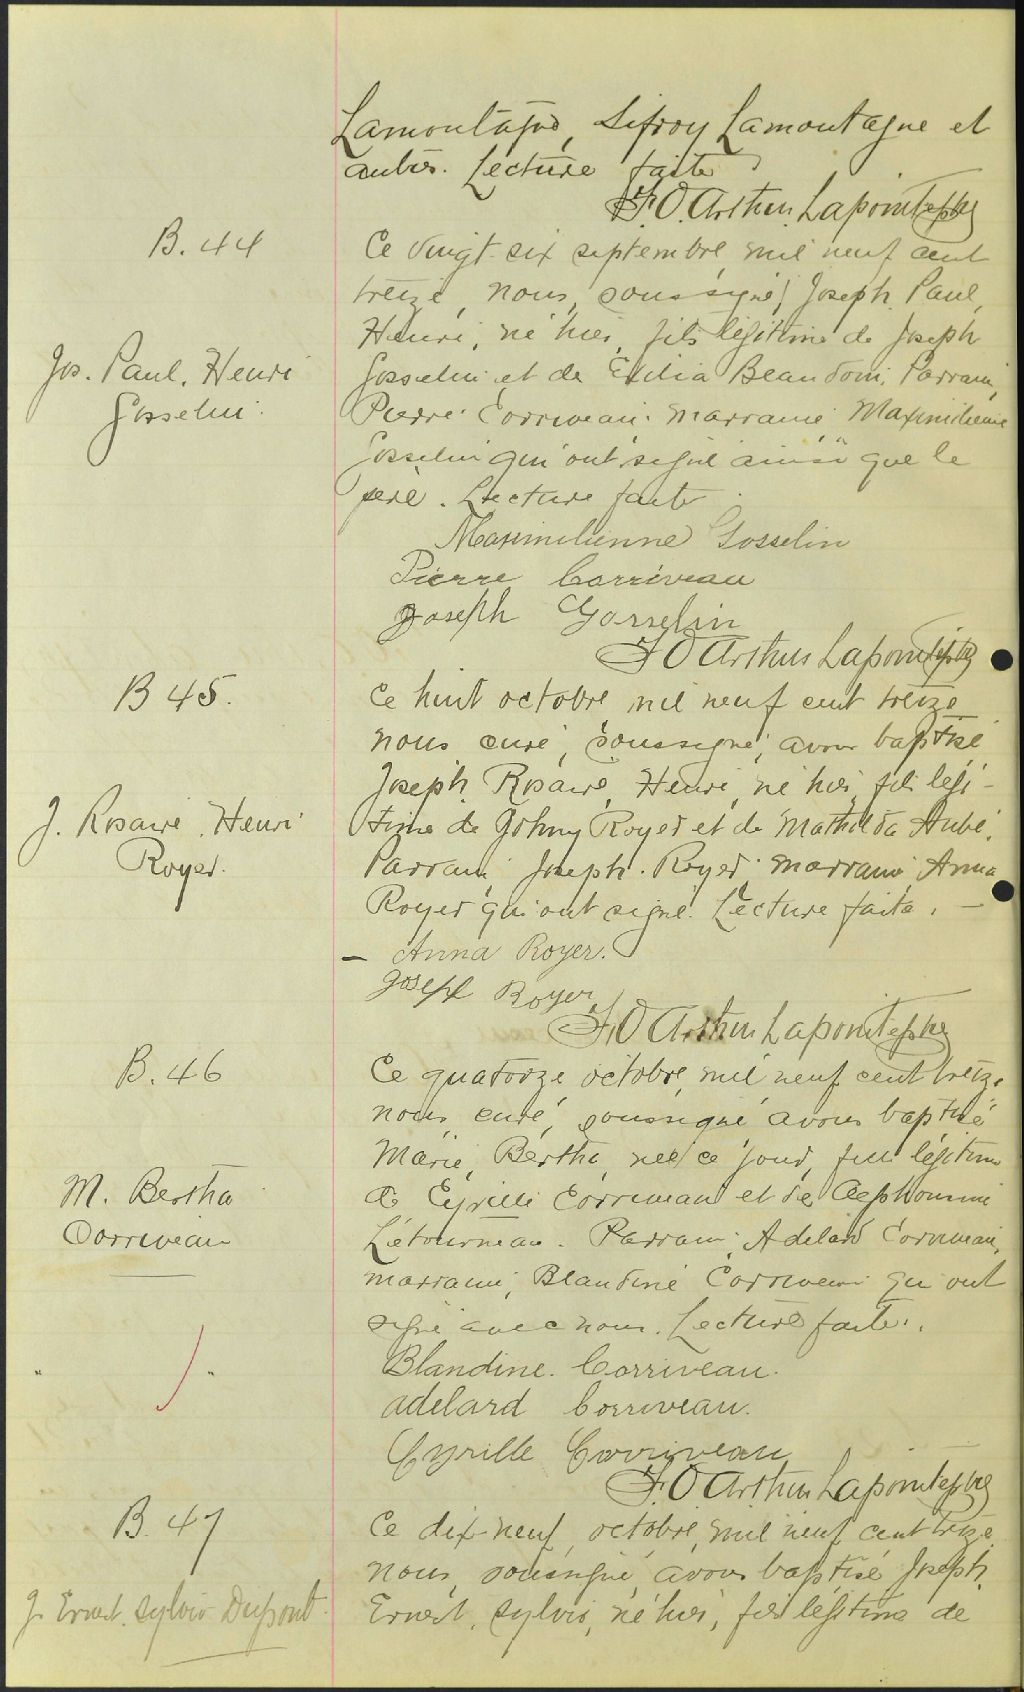 Lamontagne, Sifroy Lamontagne et
autres. Lecture faite
F. O. Arthur Lapointe ptre
B. 44
Ce vingt-six septembre mil neuf cent
treize, nous, soussigné, Joseph, Paul,
Henri, né hier, fils légitime de Joseph
Jos. Paul. Henri
Gosselin
Gosselin et de Exilia Beaudoin. Parrain,
Pierre Corriveau. marraine Maximilienne
Gosselin qui ont signé ainsi que le
père. Lecture faite.
Maximilienne Gosselin
Pierre Corriveau
Joseph Gosselin
F O Arthur Lapointe ptre
B 45.
Ce huit octobre mil neuf cent treize
nous curé, soussigné, avons baptisé
Joseph Rosaire, Henri, né hier, fils légi-
J. Rosaire. Henri
Royer.
time de Johny Royer et de Mathilda Aubé.
Parrain, Joseph. Royer; marraine Anna
Royer qui ont signé. Lecture faite. —
— Anna Royer.
Joseph Royer
F. O Arthur Lapointe ptre
B. 46
Ce quatorze octobre mil neuf cent treize
nous curé, soussigné avons baptisé
Marie, Bertha, née ce jour, fille légitime
M. Bertha
Corriveau
de Cyrille Corriveau et de Alephonsine
Létourneau. Parrain, Adelard Corriveau,
marraine, Blandine Corriveau qui ont
signé avec nous. Lecture faite.
Blandine. Corriveau.
adelard Corriveau.
Cyrille Corriveau
F. O Arthur Lapointe ptre
B. 47
Ce dix-neuf, octobre, mil neuf cent treize
nous, soussigné, avons baptisé Joseph,
J. Ernest. Sylvio Dupont.
Ernest, Sylvio, né hier, fils légitime de